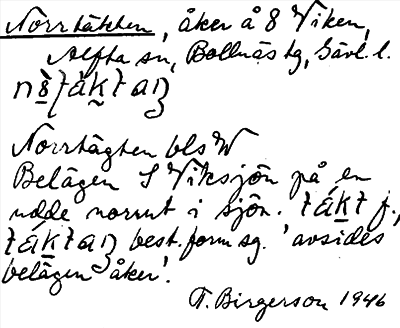 Norrtäkten, åker å 8 Viken,
Alfta sn, Bollnäs tg, Gävl. l.
Norrtägten bls W
Belägen S Viksjön på en
udde norrut i sjön. f.,
best. form sg. 'avsides
belägen åker'.
T. Birgerson 1946